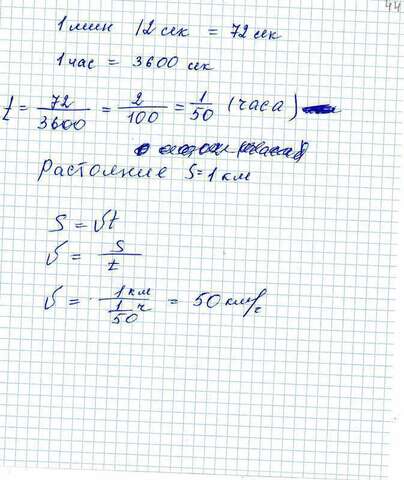 44
1 мин 12 сек = 72 сек
1 час = 3600 сек
t = 72/3600 = 2/100 = 1/50 (часа)
Растояние S = 1 км
S = υt
υ = S/t
υ = 1 км / (1/50 ч) = 50 км/ч